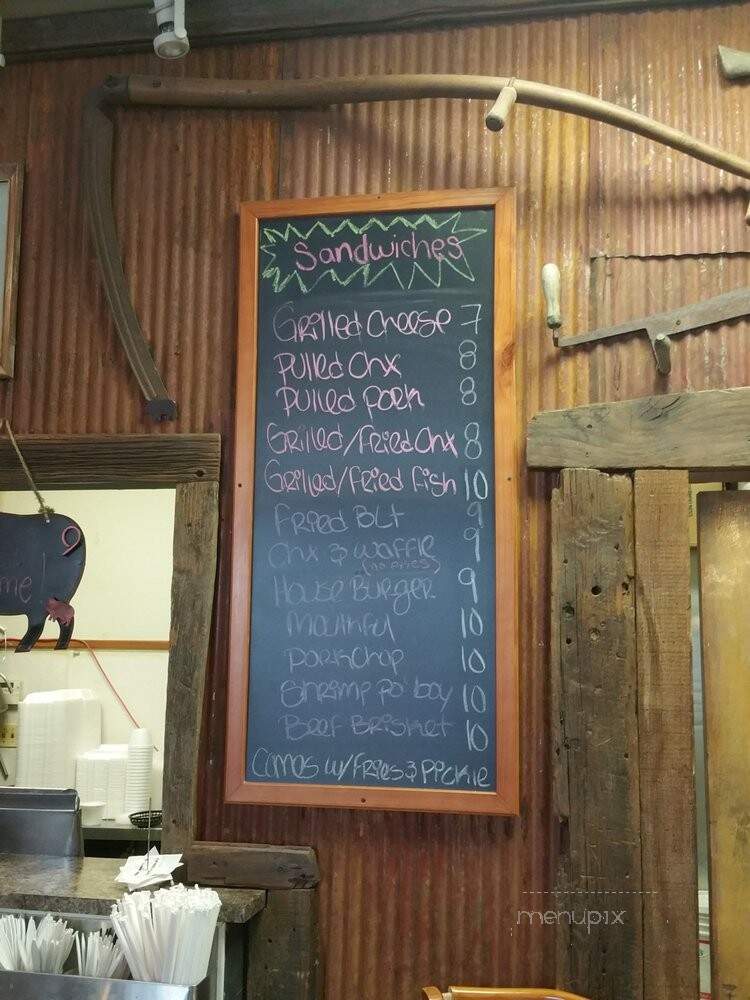 Sandwiches
Grilled Cheese 7
Pulled Chx 8
Pulled Pork 8
Grilled/Fried Chx 8
Grilled/Fried Fish 10
Fried BLT 9
Chx & Waffle 9
(no fries)
House Burger 9
Mouthful 10
Porkchop 10
Shrimp Po boy 10
Beef Brisket 10
Comes w/Fries & Pickle
me!
menupix